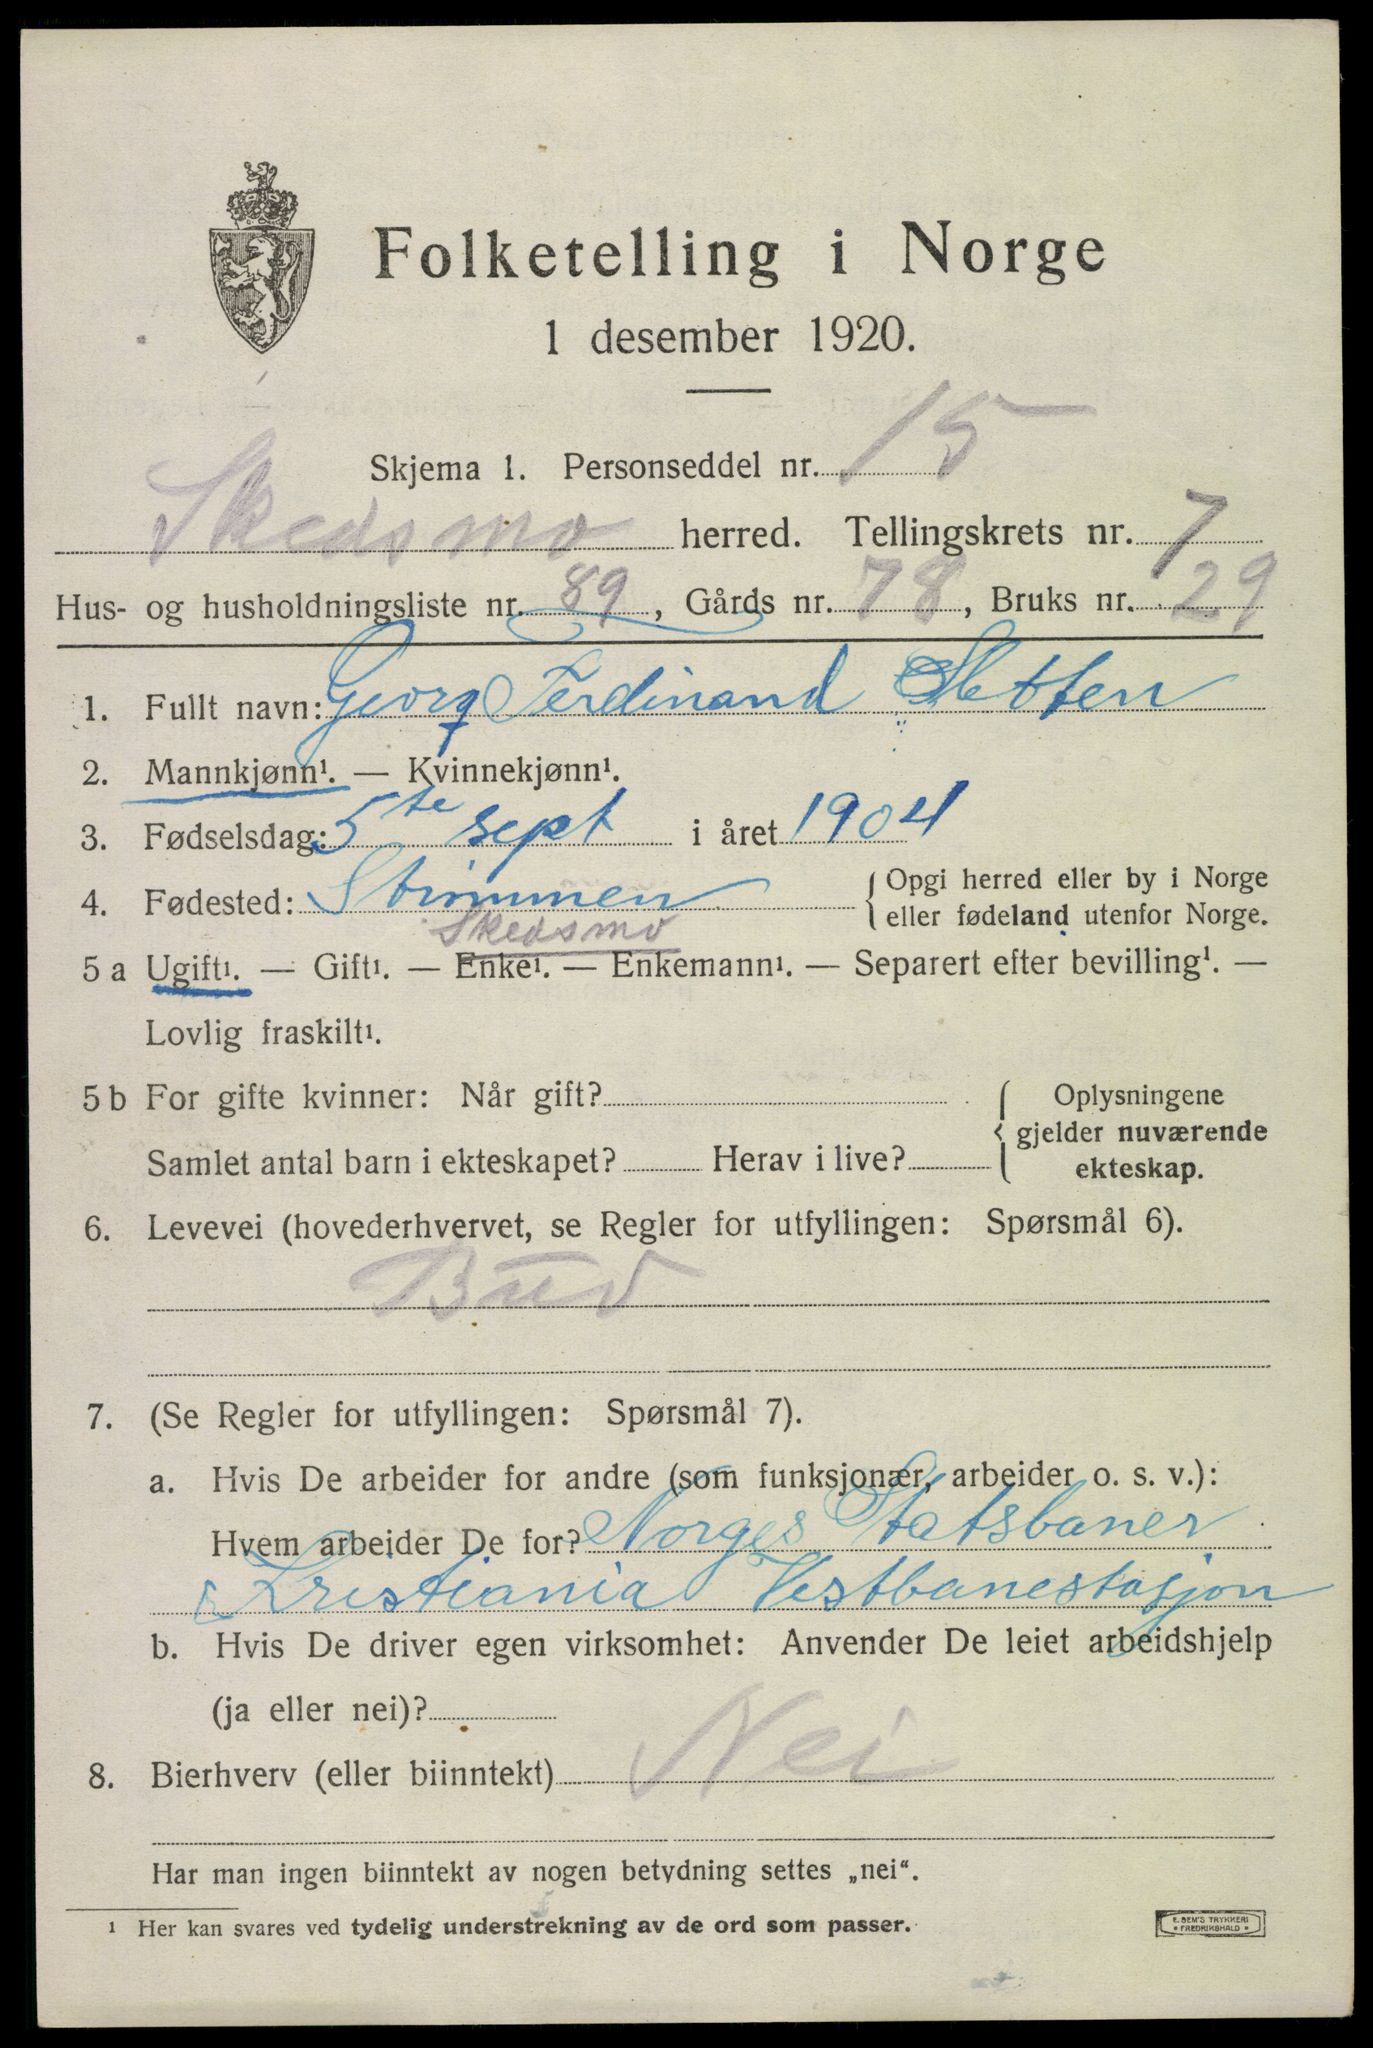 Folketelling i Norge
1 desember 1920.
Skjema 1. Personseddel nr. 15
Skedsmo herred. Tellingskrets nr. 7
Hus- og husholdningsliste nr. 89, Gårds nr. 78, Bruks nr. 29
1. Fullt navn: Georg Ferdinand Sletten
2. Mannkjønn¹. — Kvinnekjønn¹.
3. Fødselsdag: 5te sept i året 1904
4. Fødested: Strømmen { Opgi herred eller by i Norge
eller fødeland utenfor Norge.
Skedsmo
5 a Ugift¹. — Gift¹. — Enke¹. — Enkemann¹. — Separert efter bevilling¹. —
Lovlig fraskilt¹.
5 b For gifte kvinner: Når gift? { Oplysningene
gjelder nuværende
Samlet antal barn i ekteskapet? Herav i live? ekteskap.
6. Levevei (hovederhvervet, se Regler for utfyllingen: Spørsmål 6).
Bud
7. (Se Regler for utfyllingen: Spørsmål 7).
a. Hvis De arbeider for andre (som funksjonær, arbeider o. s. v.):
Hvem arbeider De for? Norges Statsbaner
Kristiania Vestbanestasjon
b. Hvis De driver egen virksomhet: Anvender De leiet arbeidshjelp
(ja eller nei)?
8. Bierhverv (eller biinntekt) Nei
Har man ingen biinntekt av nogen betydning settes „nei“.
¹ Her kan svares ved tydelig understrekning av de ord som passer.
E. SEM'S TRYKKERI
• FREDRIKSHALD •